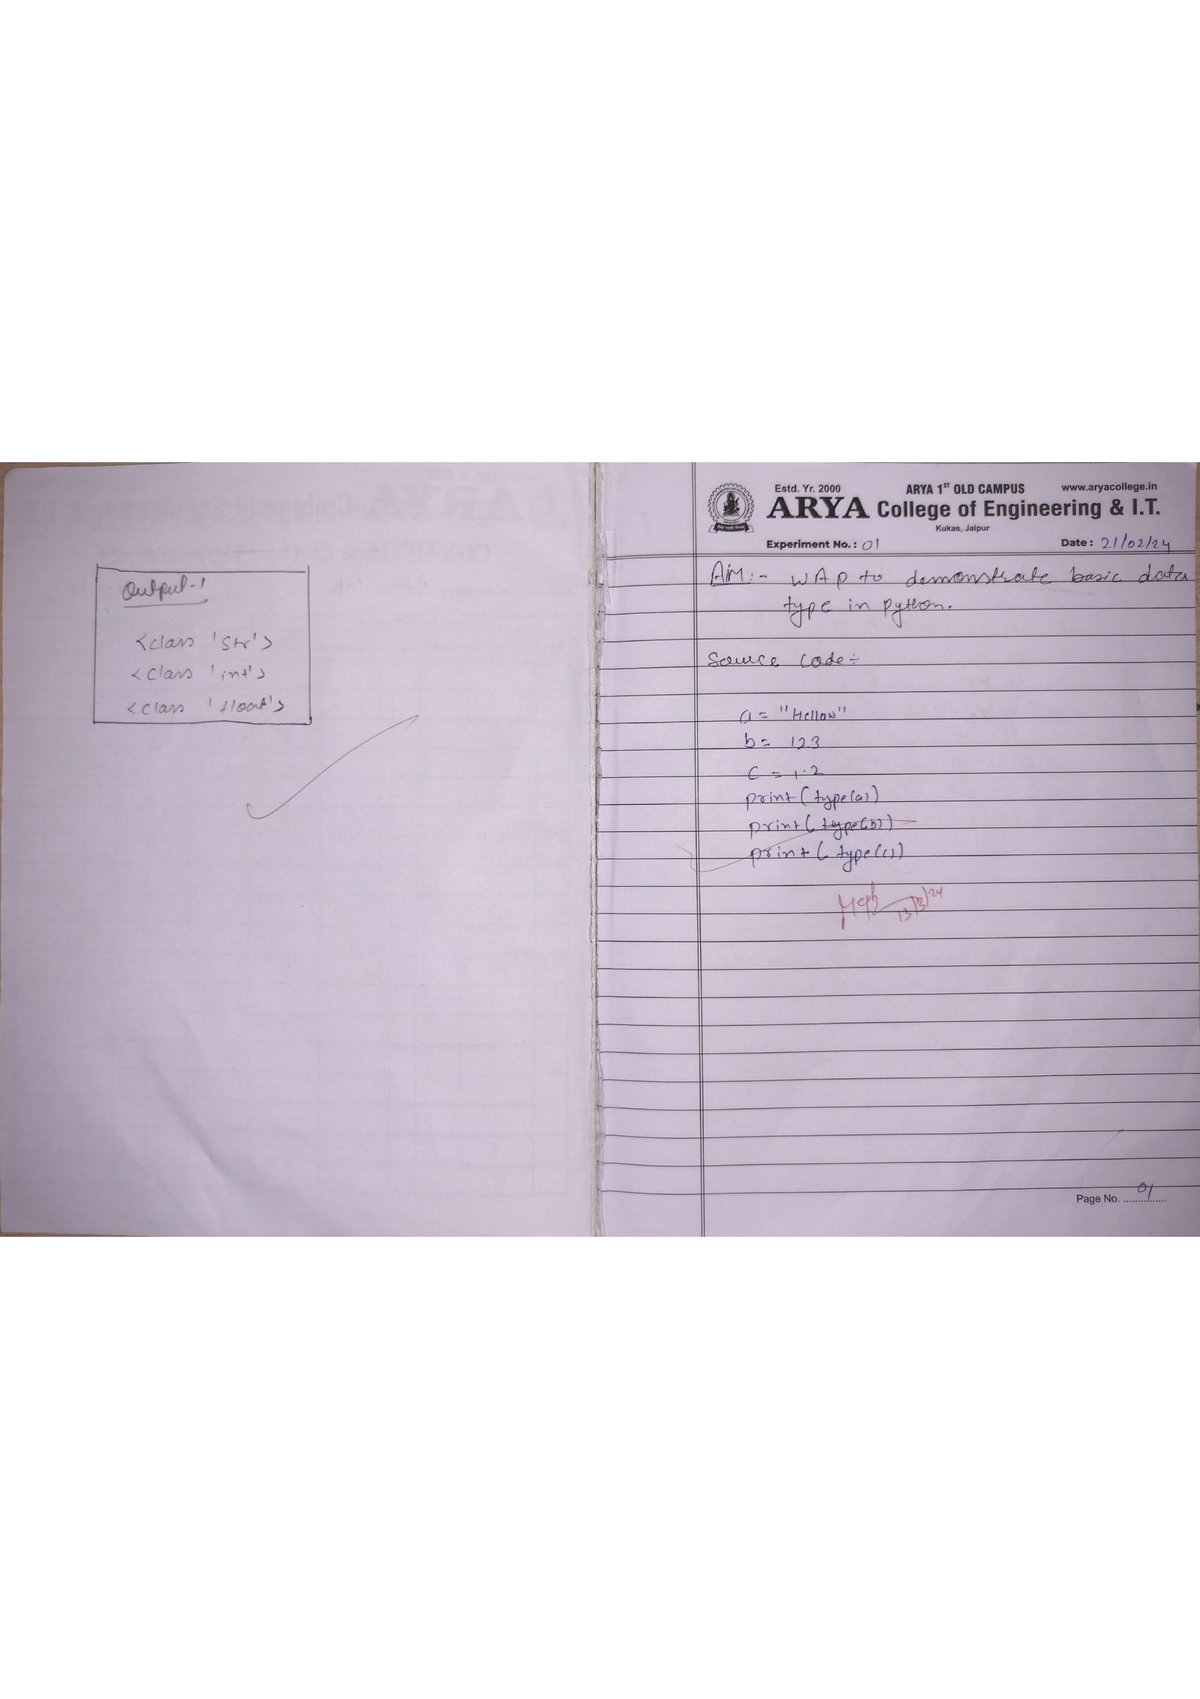 Output-1
<class 'str'>
<class 'int'>
<class 'float'>
Estd. Yr. 2000
ARYA 1ST OLD CAMPUS
www.aryacollege.in
ARYA College of Engineering & I.T.
Kukas, Jaipur
Experiment No. : 01
Date : 21/02/24
AIM:- WAP to demonstrate basic data
type in python.
Source Code:-
a = "Hellow"
b = 123
c = 1.2
print(type(a))
print(type(b))
print(type(c))
13/3/24
Page No. 01